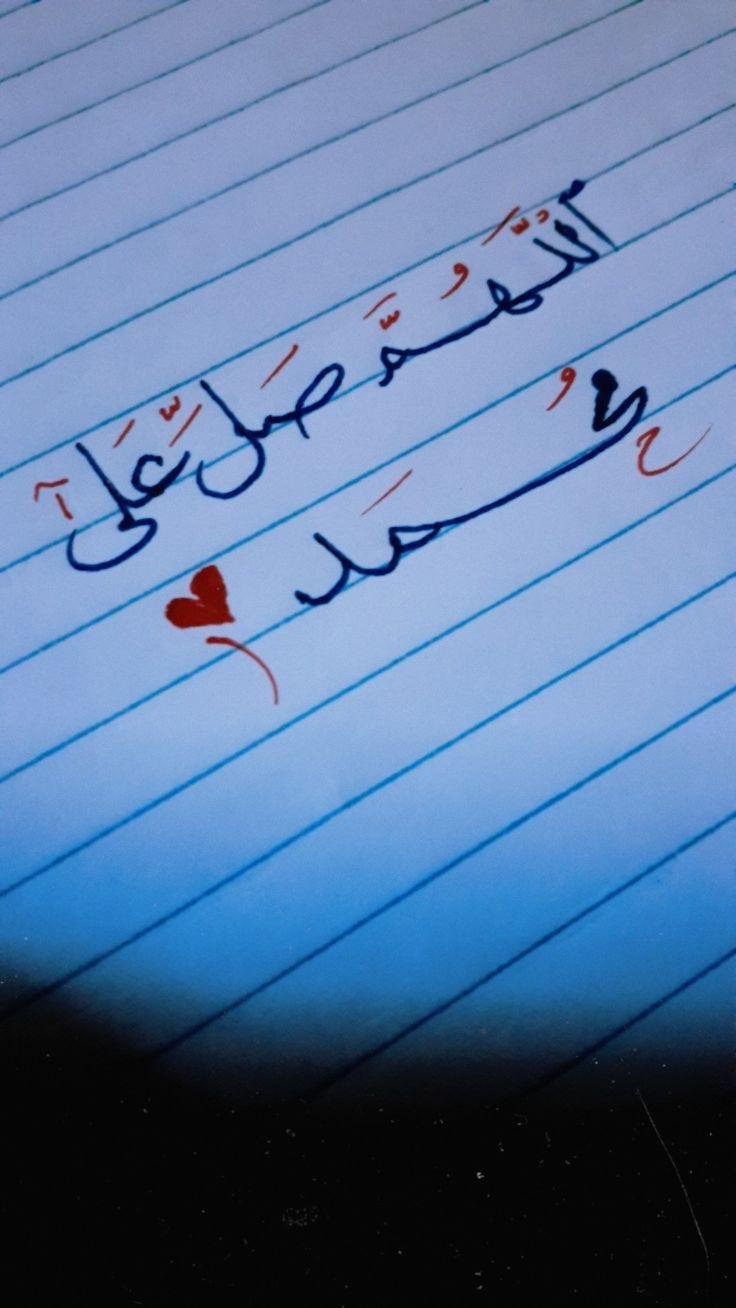 اللَّهُمَّ صَلِّ عَلَى
مُحَمد